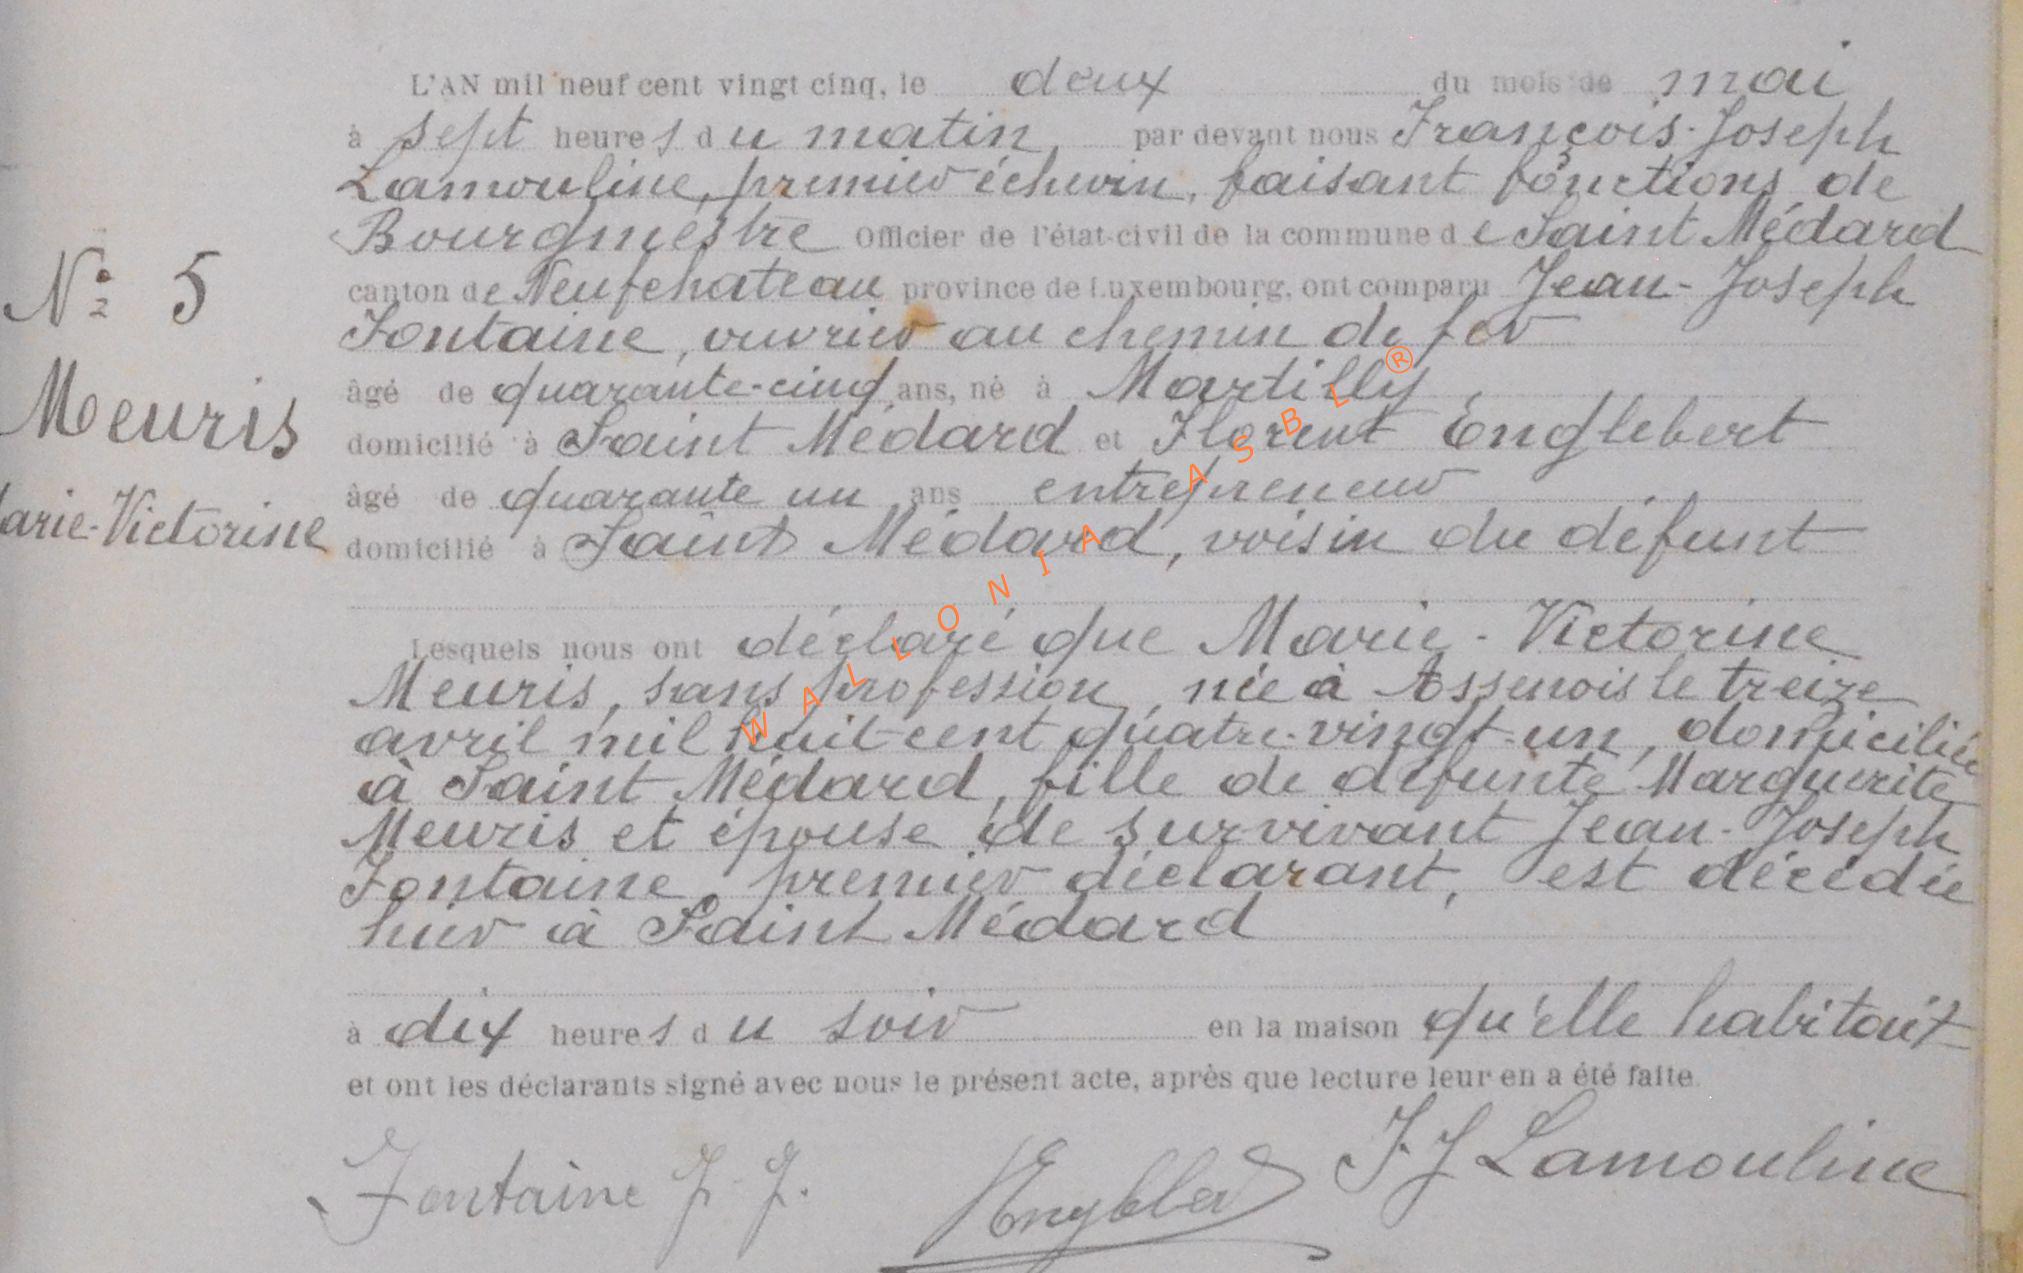 N° 5
Meuris
arie-Victorine
L'AN mil neuf cent vingt cinq, le deux du mois de mai
à sept heures du matin, par devant nous François-Joseph
Lamouline, premier échevin, faisant fonctions de
Bourgmestre Officier de l'état-civil de la commune de Saint Médard
canton de Neufchateau province de Luxembourg, ont comparu Jean-Joseph
Fontaine, ouvrier au chemin de fer
âgé de quarante-cinq ans, né à Martilly,
domicilié à Saint Médard et Florent Englebert
âgé de quarante un ans entrepreneur
domicilié à Saint Médard, voisin du défunt
Lesquels nous ont déclaré que Marie-Victorine
Meuris, sans profession, née à Assenois le treize
avril mil huit cent quatre-vingt-un, domiciliée
à Saint Médard, fille de défunte Marguerite
Meuris et épouse de survivant Jean-Joseph
Fontaine, premier déclarant, est décédée
hier à Saint Médard
à dix heures du soir en la maison qu'elle habitait
et ont les déclarants signé avec nous le présent acte, après que lecture leur en a été faite.
Fontaine J. J. FJ Lamouline
WALLONIA ASBL ®